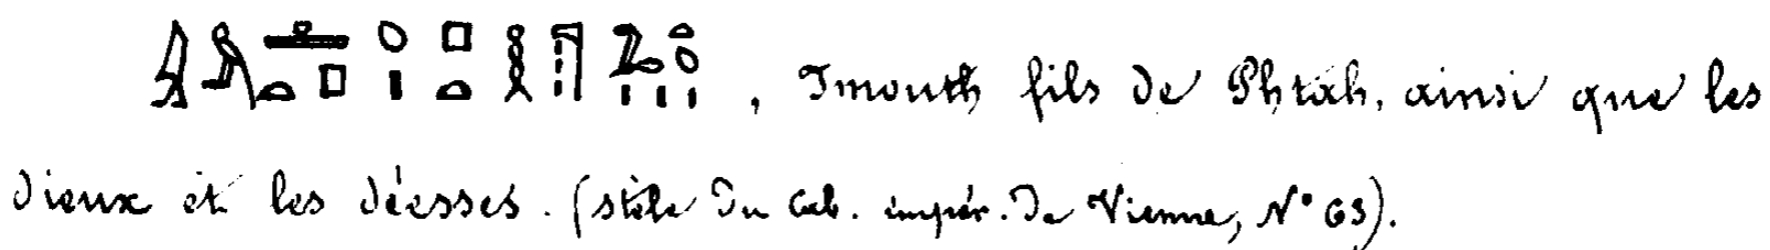 , Imouth fils de Phtah, ainsi que les
dieux et les déesses. (stèle du Cab. impér. de Vienne, N° 63).